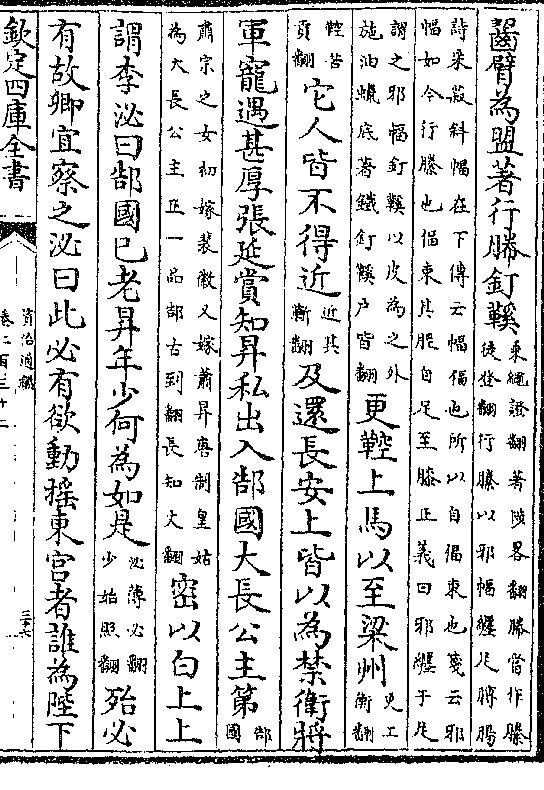 齧臂為盟著行勝釘鞵乗繩證翻著陟畧翻勝當作縢
徒登翻行縢以邪幅纏足膊腸
詩采菽斜幅在下傳云幅偪也所以自偪束也箋云邪
幅如今行縢也偪束其脛自足至膝正義曰邪纏于足
謂之邪幅釘鞵以皮為之外
施油蠟底著鐵釘鞵户皆翻更鞚上馬以至梁州更工
衡翻
鞚苦
貢翻它人皆不得近近其
靳翻及還長安上皆以為禁衛將
軍寵遇甚厚張延賞知昇私出入郜國大長公主第郜
國
肅宗之女初嫁裴徽又嫁蕭昇唐制皇姑
為大長公主正一品郜古到翻長知丈翻密以白上上
謂李泌曰郜國已老昇年少何為如是泌薄必翻
少始照翻殆必
有故卿宜察之泌曰此必有欲動搖東宫者誰為陛下
欽定四庫全書
資治通鑑
卷二百三十二
三十六